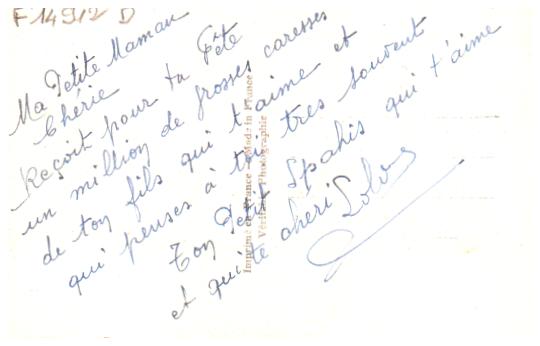 F 14912 D
Ma Petite Maman
Chérie
Reçoit pour ta Fête
un million de grosses caresses
de ton fils qui t'aime et
qui penses à toi tres souvent
Ton Petit Spahis qui t'aime
et qui te cheri Lolo
Imprimé en France - Made in France
Véritable Photographie